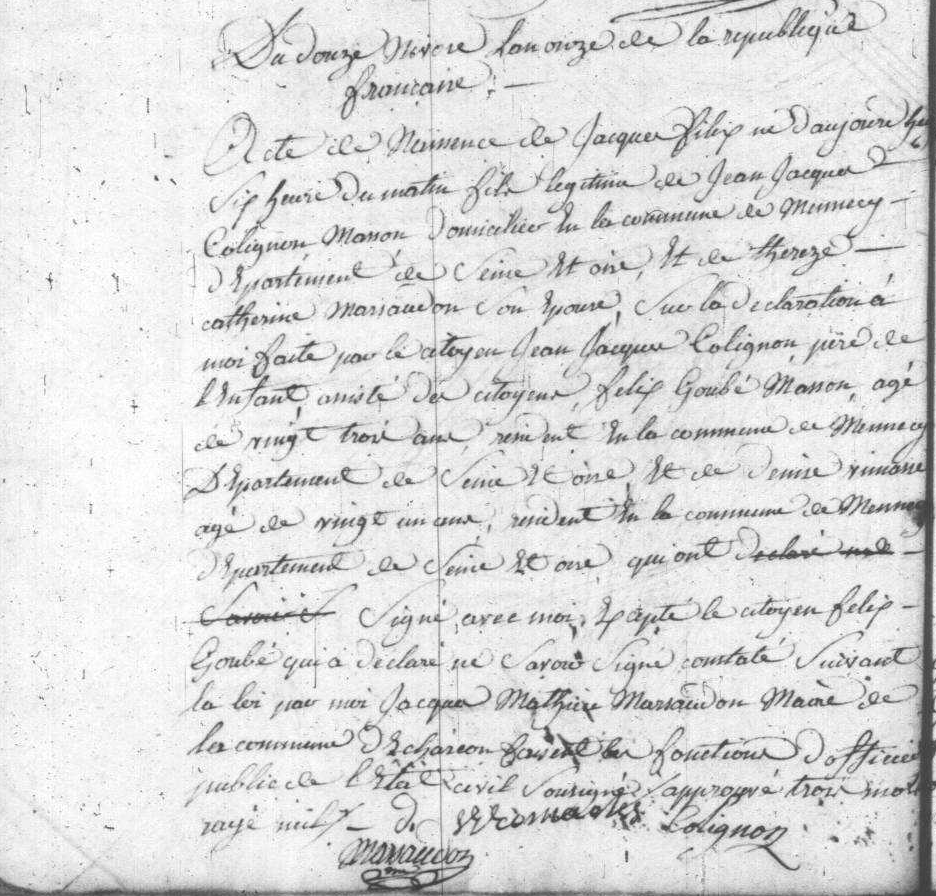 Du douze Nivose Lan onze de la republique
francaise. —
Acte de Neissence de Jacques félix né daujourdhui
Six heure du matin fils legitime de Jean Jacques
Colignon Masson domicilier En la commune de Mennecy —
dEpartement de Seine Et oise, Et de thereze —
catherine Marsaudon Son Epouse, Sur la declaration à
moi faite par le citoyen Jean Jacques Colignon pere de
lEnfant, assisté des citoyens, felix Goubé Masson, agé
de vingt trois ans, resident En la commune de Mennecy
DEpartement de Seine Et oise, Et de denise
agé de vingt un ans, resident En la commune de Mennecy
dEpartement de Seine Et oise qui ont declaré ne —
Savoir Signé avec moi, Excepté le citoyen felix —
Goubé qui à declaré ne Savoir Signé constaté Suivant
la loi par moi Jacques Mathieu Marsaudon Maire de
la commune dEcharcon faisant les fonctions dofficier
public de lEtat civil Sousigné approuvé trois mots
rayé nuls — d. Colignon
Marsaudon